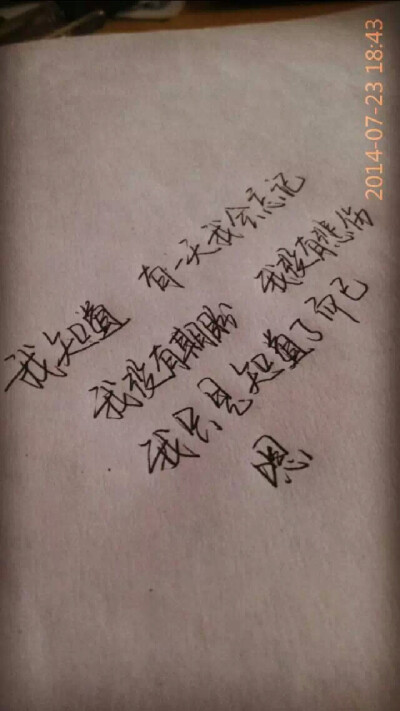 2014-07-23 18:43
我知道 有一天我会忘记
我没有期盼 我没有悲伤
我只是知道了而已
嗯